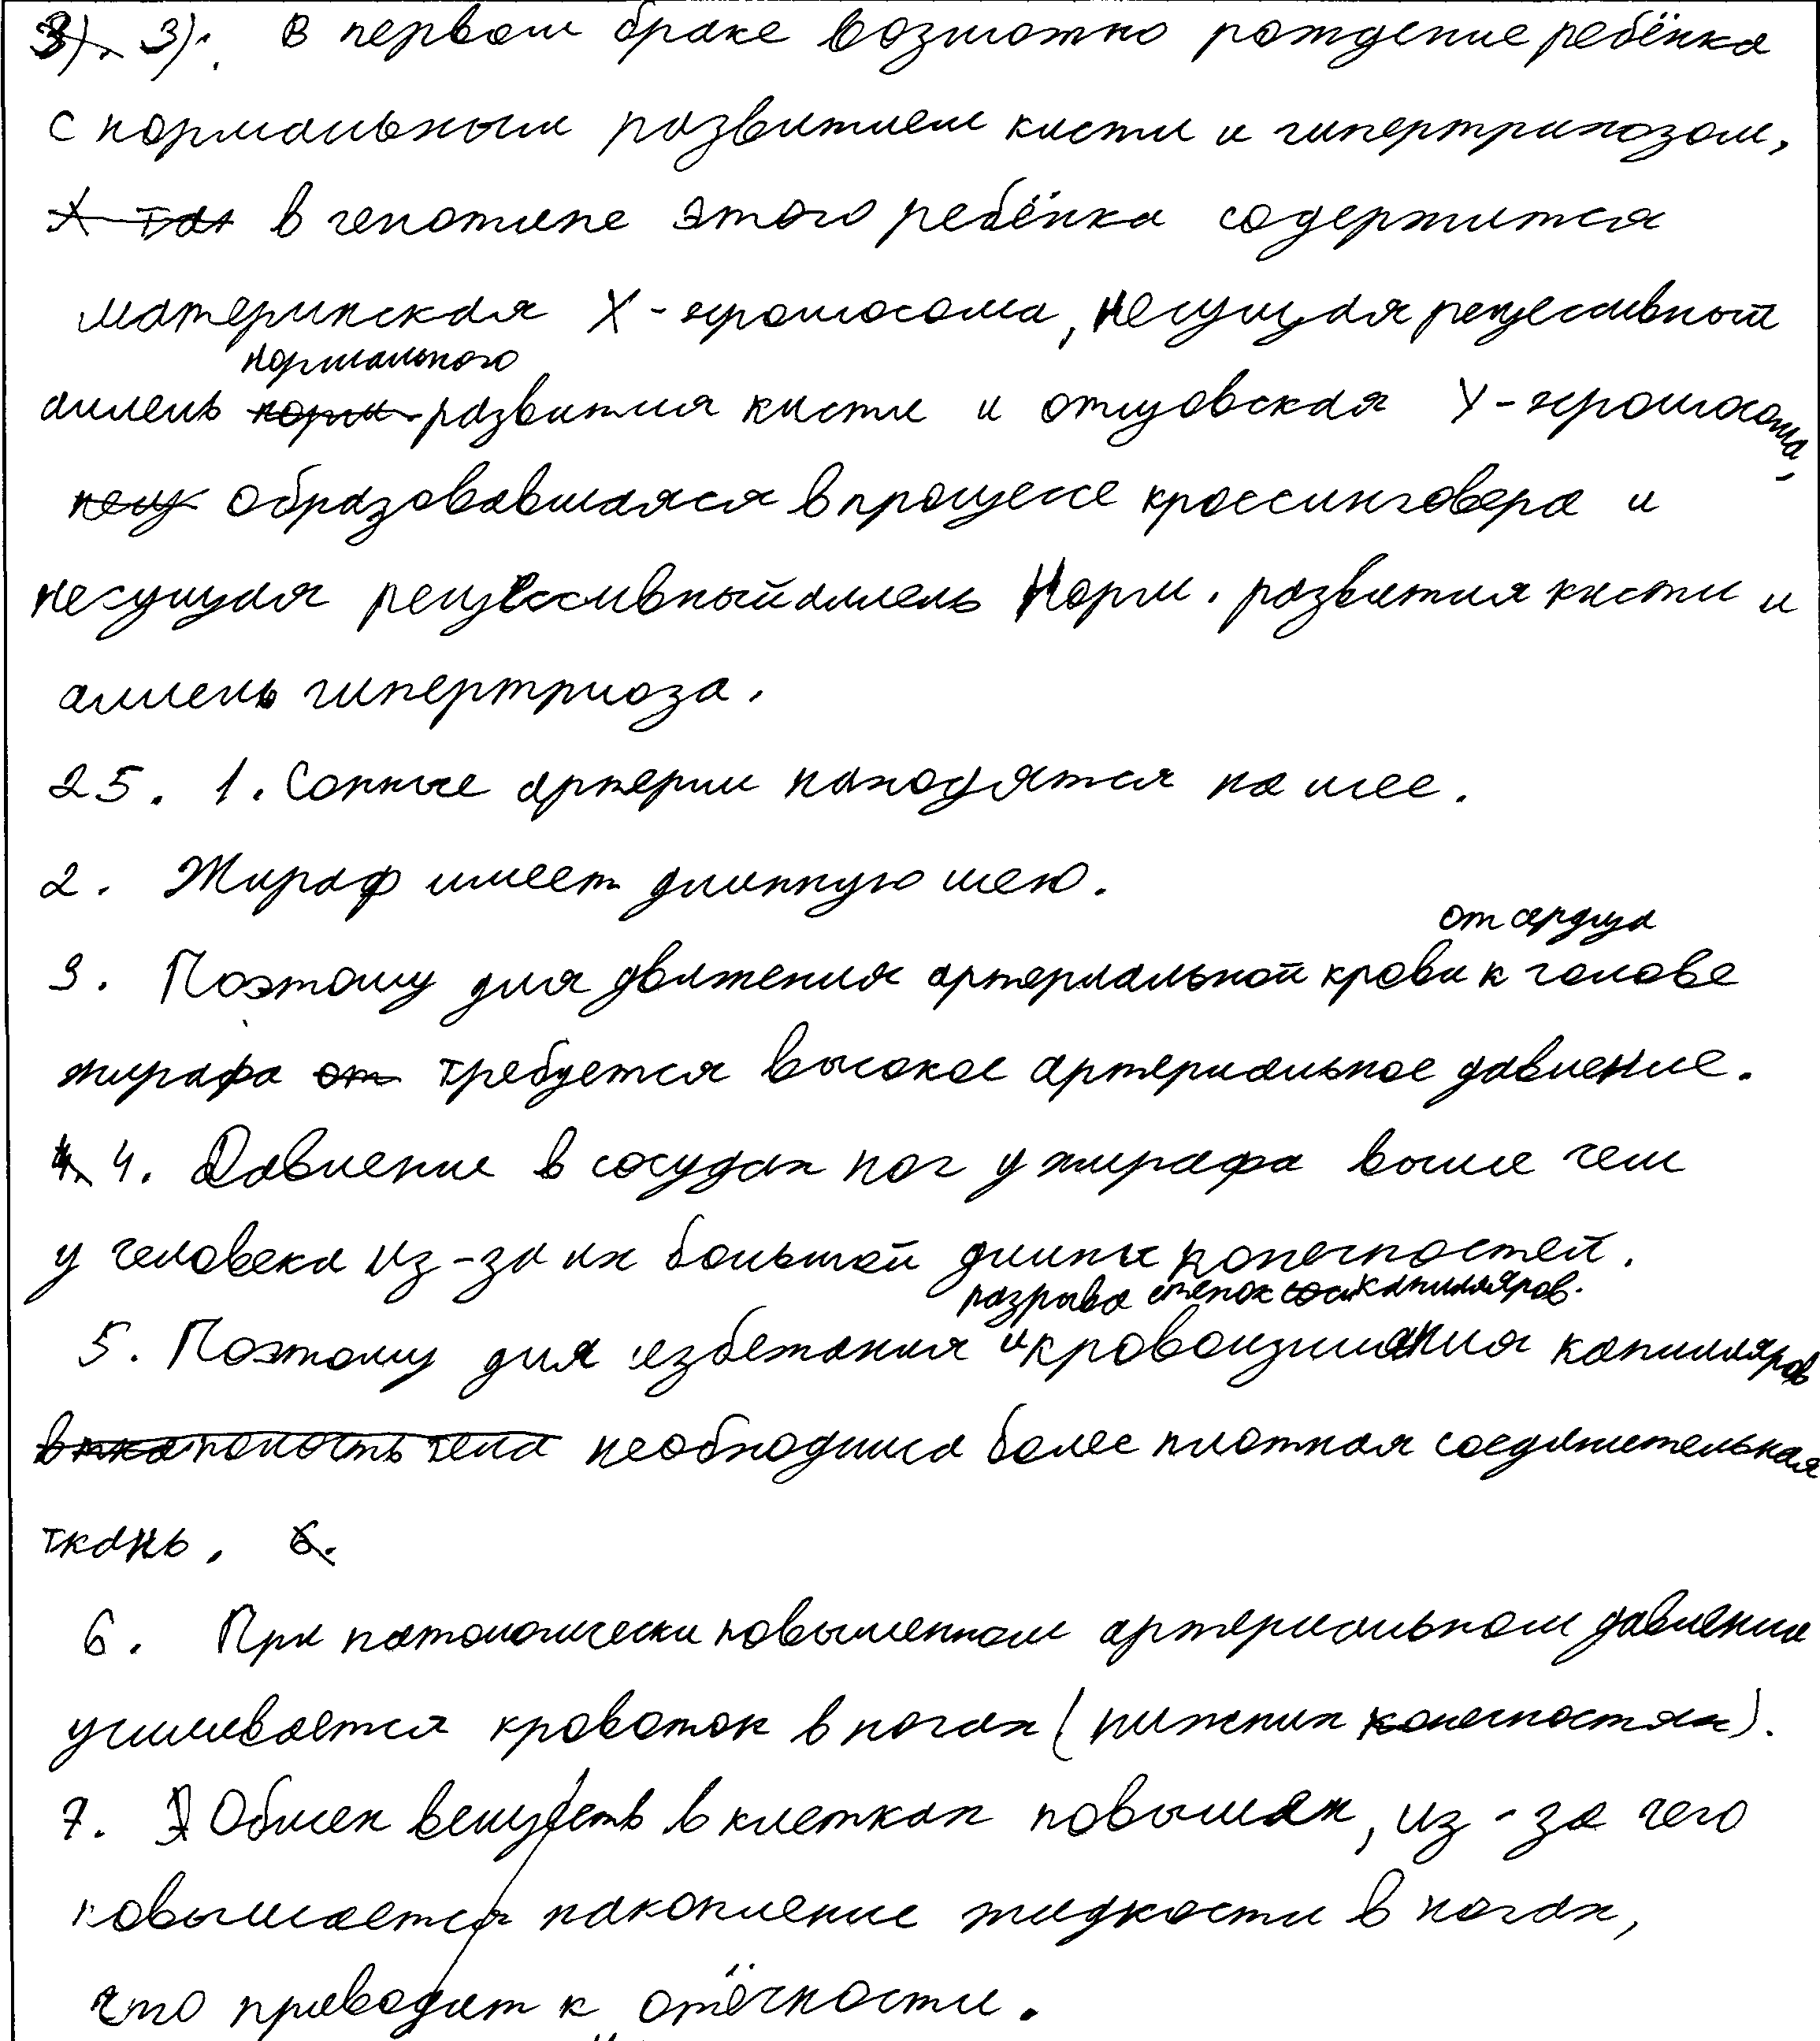 3). В первом браке возможно рождение ребёнка
с нормальным развитием кисти и гипертрихозом,
в генотипе этого ребёнка содержится
материнская X-хромосома, несущая рецессивный
нормального
аллель развития кисти и отцовская Y-хромосома,
образовавшаяся в процессе кроссинговера и
несущая рецессивный аллель норм. развития кисти и
аллель гипертриоза.
25. 1. Сонные артерии находятся на шее.
2. Жираф имеет длинную шею.
от сердца
3. Поэтому для движения артериальной крови к голове
жирафа требуется высокое артериальное давление.
4. Давление в сосудах ног у жирафа выше чем
у человека из-за их большой длины конечностей.
разрыва стенок капилляров.
5. Поэтому для избежания и кровоизлияния капилляров
необходима более плотная соединительная
ткань.
6. При патологически повышенном артериальном давлении
усиливается кровоток в ногах (нижних конечностях).
7. Обмен веществ в клетках повышен, из-за чего
повышается накопление жидкости в ногах,
что приводит к отёчности.